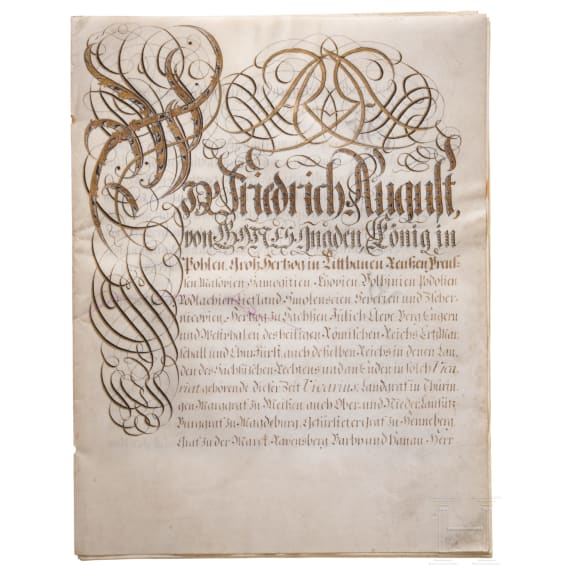 Wir Friedrich August,
von GOTTES Gnaden König in
Pohlen, Groß-Hertzog in Litthauen, Reußen, Preuß-
sen, Mazovien, Samogitien, Kyovien, Volhinien, Podolien
Podlachien, Liefland, Smolenscien, Severien und Zscher-
nicovien, Hertzog zu Sachßen, Jülich, Cleve, Berg, Engern
und Westphalen, des heiligen Römischen Reichs ErtzMar-
schall und ChurFürst, auch deßelben Reichs in denen Lan-
den des Sächsischen Rechtens und an Enden in solch Vica-
riat gehörende dieser Zeit Vicarius, Landgraf in Thürin-
gen, Marggraf zu Meißen, auch Ober- und Nieder Laußitz
Burggraf zu Magdeburg, Gefürsteter Graf zu Henneberg
Graf zu der Marck, Ravensberg, Barby und Hanau, Herr